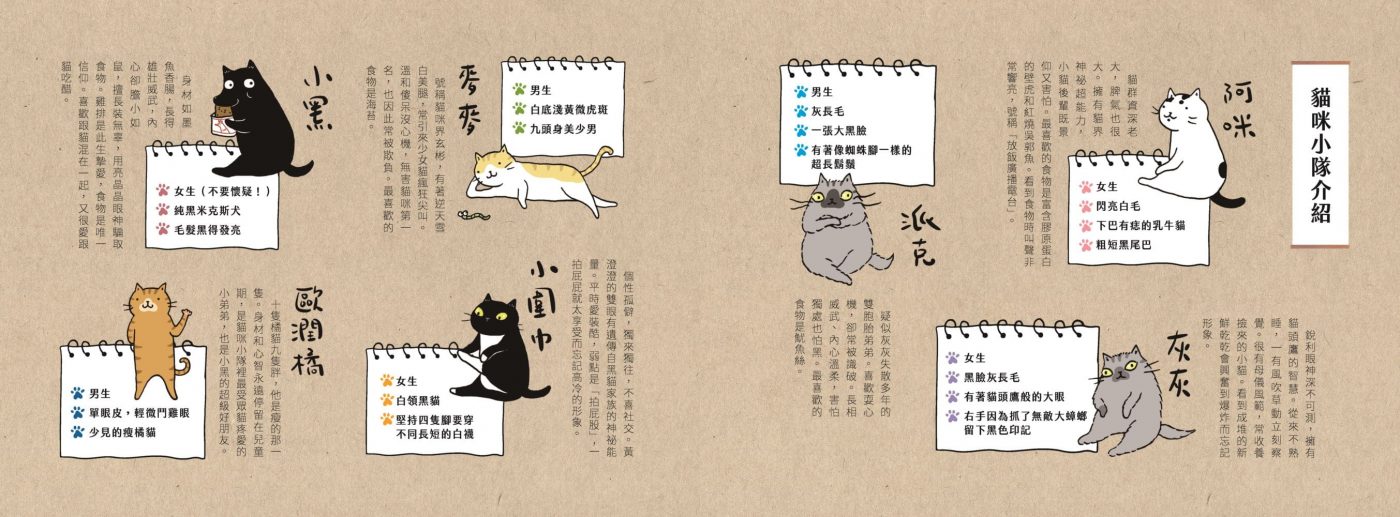 貓咪小隊介紹
阿咪
貓群資深老
大，脾氣也很
大。擁有貓界
神祕超能力，
小貓後輩既景
仰又害怕。最喜歡的食物是富含膠原蛋白
的壁虎和紅燒吳郭魚。看到食物時叫聲非
常響亮，號稱「放飯廣播電台」。
女生
閃亮白毛
下巴有痣的乳牛貓
粗短黑尾巴
灰灰
銳利眼神深不可測，擁有
貓頭鷹的智慧。從來不熟
睡，一有風吹草動立刻察
覺。很有母儀風範，常收養
撿來的小貓。看到成堆的新
鮮乾乾會興奮到爆炸而忘記
形象。
女生
黑臉灰長毛
有著貓頭鷹般的大眼
右手因為抓了無敵大蟑螂
留下黑色印記
派克
男生
灰長毛
一張大黑臉
有著像蜘蛛腳一樣的
超長鬍鬚
疑似灰灰失散多年的
雙胞胎弟弟。喜歡耍心
機，卻常被識破。長相
威武、內心溫柔，害怕
獨處也怕黑。最喜歡的
食物是魷魚絲。
麥麥
男生
白底淺黃微虎斑
九頭身美少男
號稱貓咪界玄彬，有著逆天雪
白美腿，常引來少女貓瘋狂尖叫。
溫和傻呆沒心機，無害貓咪第一
名，也因此常被欺負。最喜歡的
食物是海苔。
小圍巾
個性孤僻，獨來獨往，不喜社交。黃
澄澄的雙眼有遺傳自黑貓家族的神祕能
量。平時愛裝酷，弱點是「拍屁股」，一
拍屁屁就太享受而忘記高冷的形象。
女生
白領黑貓
堅持四隻腳要穿
不同長短的白襪
小黑
身材如墨
魚香腸，長得
雄壯威武，內
心卻膽小如
鼠，擅長裝無辜，用亮晶晶眼神騙取
食物。雞排是此生摯愛，食物是唯一
信仰。喜歡跟貓混在一起，又很愛跟
貓吃醋。
女生（不要懷疑！）
純黑米克斯犬
毛髮黑得發亮
歐潤橘
十隻橘貓九隻胖，他是瘦的那一
隻。身材和心智永遠停留在兒童
期，是貓咪小隊裡最受眾貓疼愛的
小弟弟，也是小黑的超級好朋友。
男生
單眼皮，輕微鬥雞眼
少見的瘦橘貓